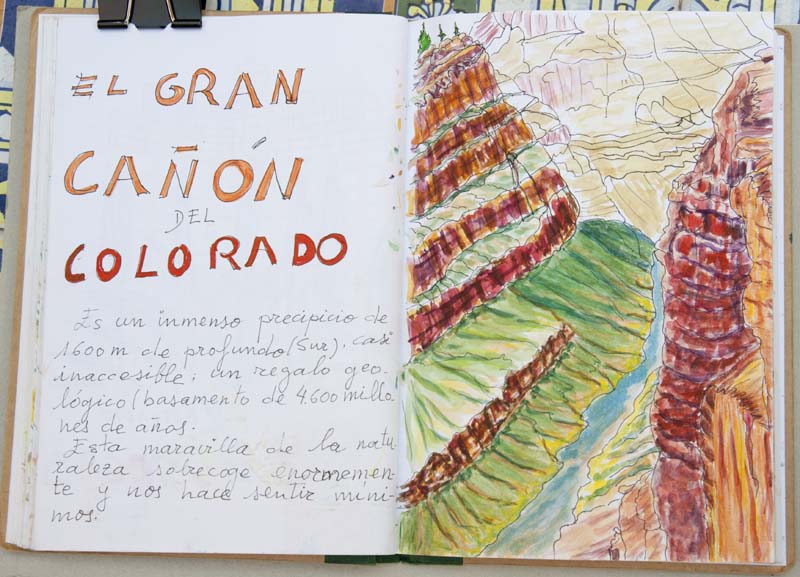 EL GRAN
CAÑÓN
DEL
COLORADO
Es un inmenso precipicio de
1600 m de profundo (Sur). casi
inaccesible; un regalo geo-
lógico (basamento de 4.600 millo-
nes de años.
Esta maravilla de la natu
raleza sobrecoge enormemen-
te y nos hace sentir míni-
mos.